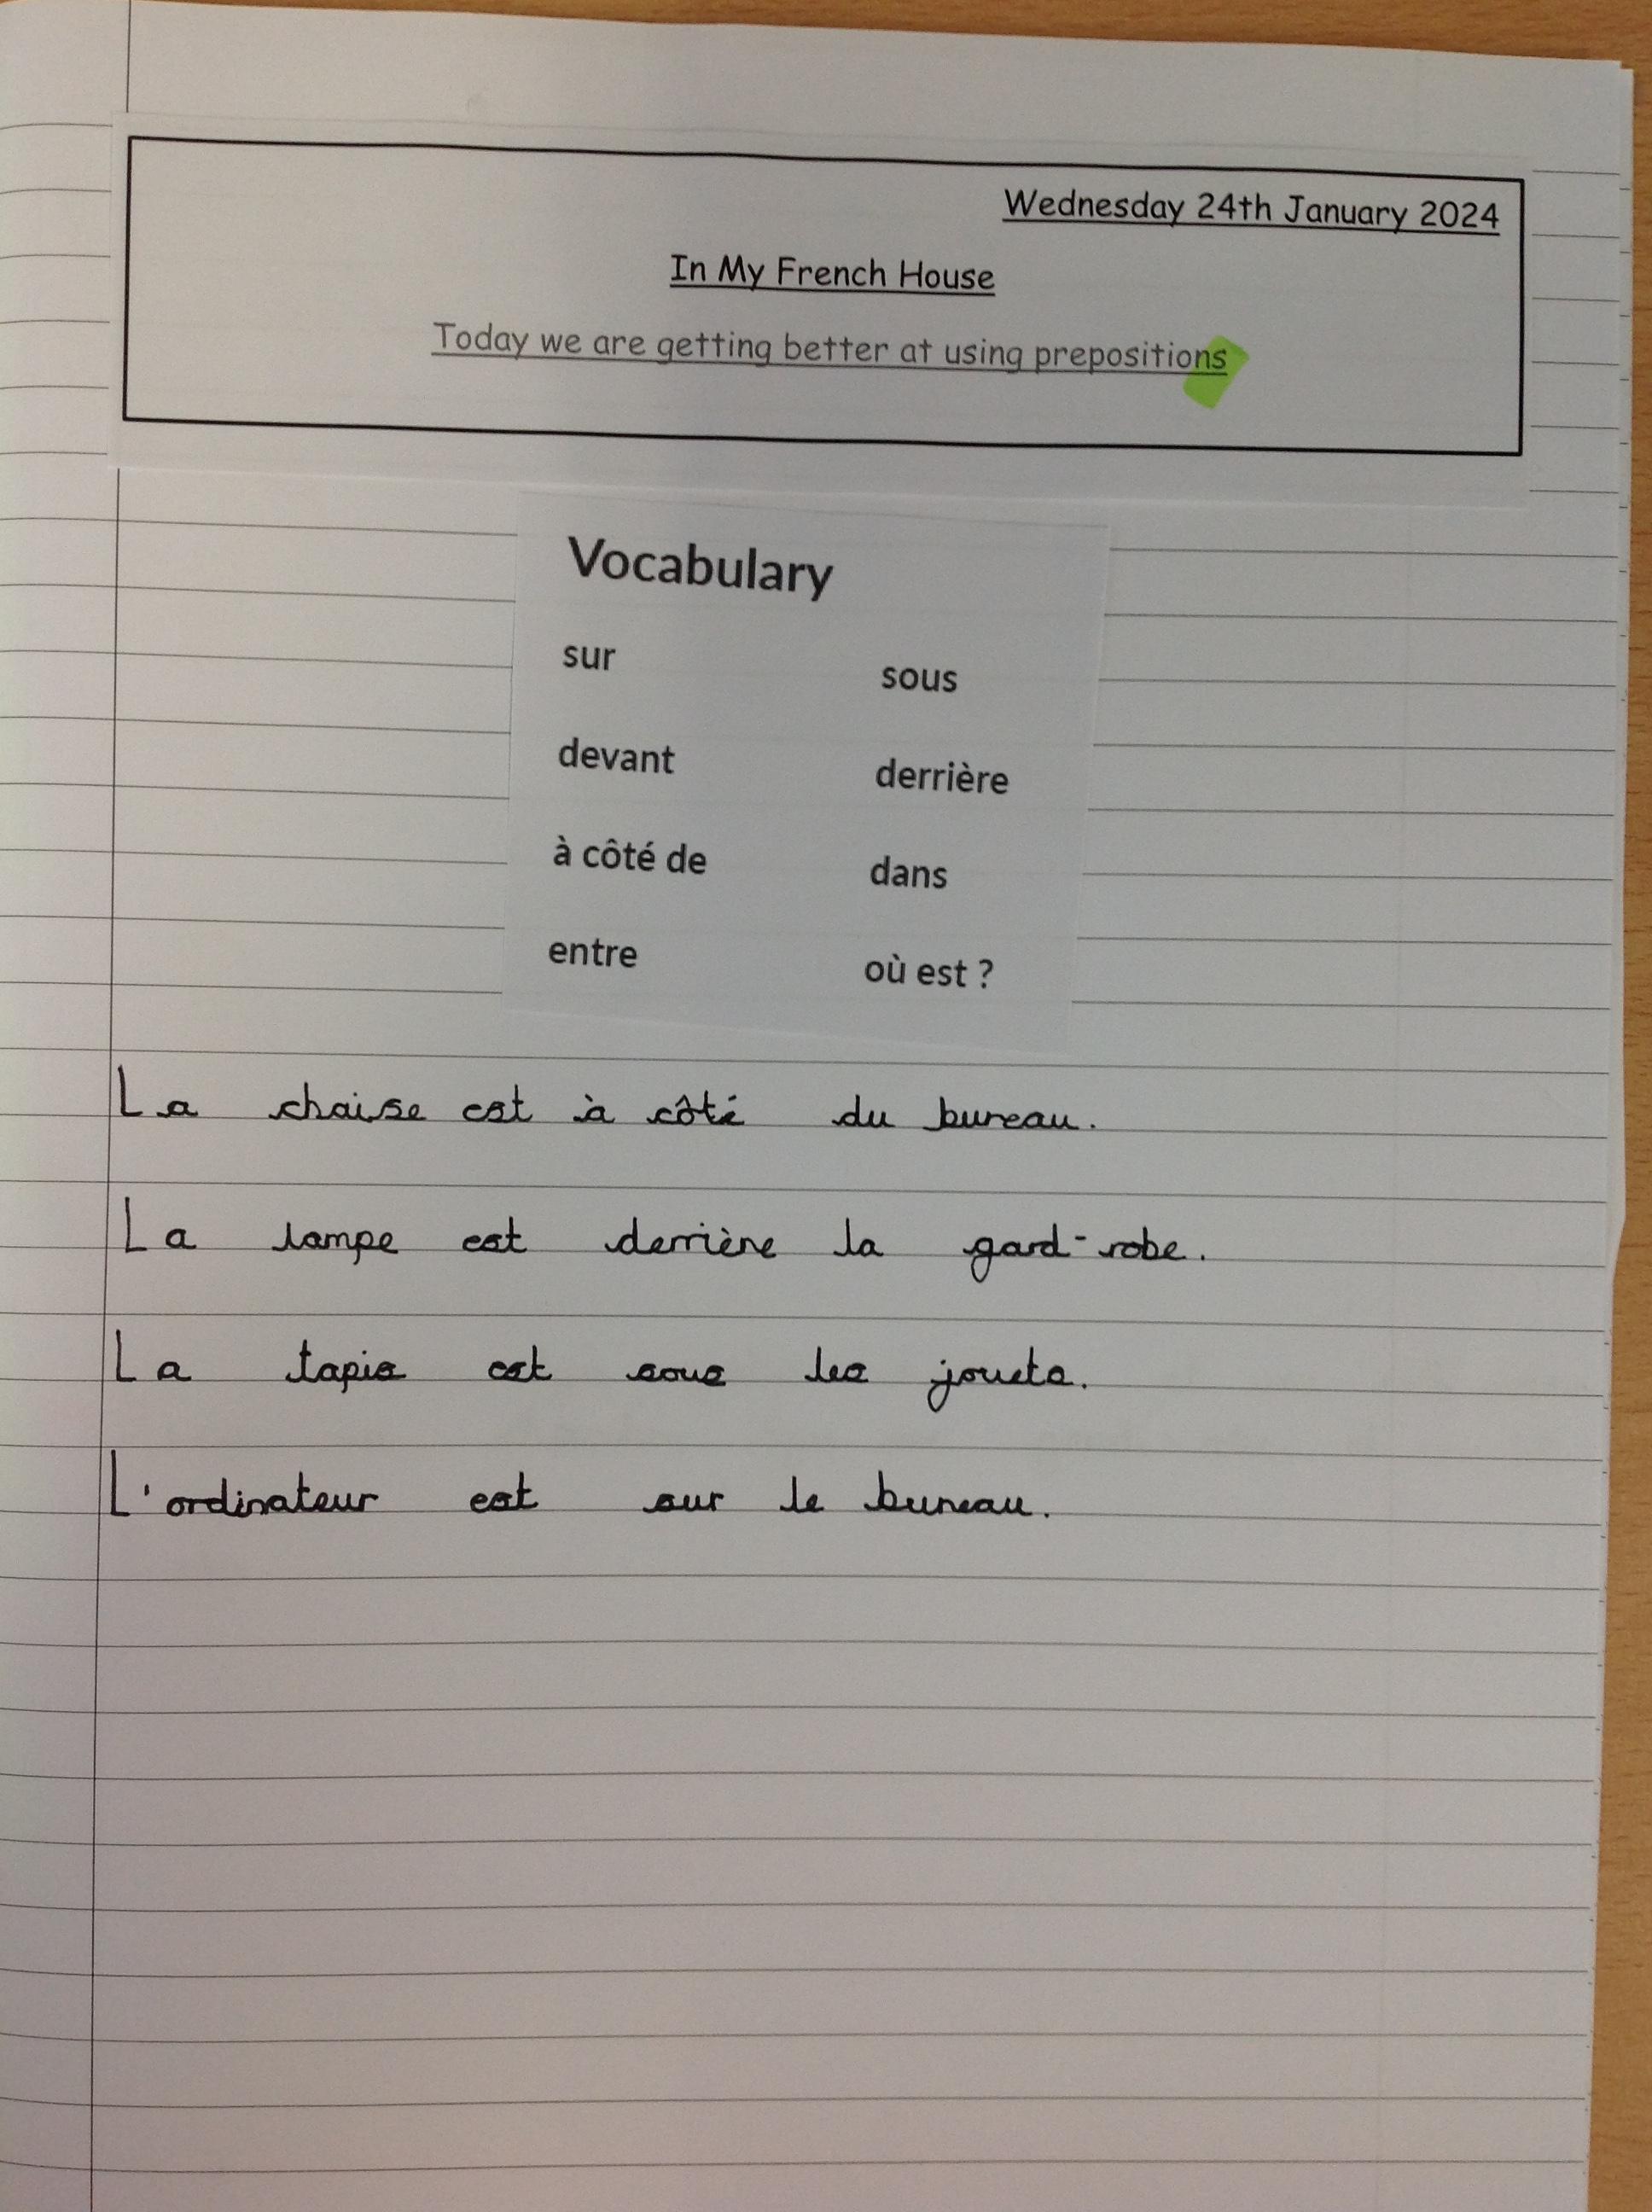 Wednesday 24th January 2024
In My French House
Today we are getting better at using prepositions
Vocabulary
sur sous
devant derrière
à côté de dans
entre où est ?
La chaise est à côté du bureau.
La lampe est derrière la gard-robe.
La tapis est sous les jouets.
L'ordinateur est sur le bureau.